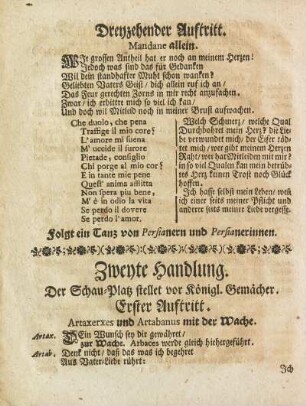 Dreyzehender Auftritt.
Mandane allein.
Wie grossen Antheil hat er noch an meinem Herzen!
Jedoch was sind das für Gedanken
Wil dein standhafter Muht schon wanken?
Geliebten Vaters Geist / dich allein ruf ich an /
Das Feur gerechten Zorns in mir recht anzufachen.
Zwar / ich erbittre mich so viel ich kan /
Und doch wil Mitleid noch in meiner Brust aufwachen.
Che duolo, che pena
Traffige il mio core?
L'amore mi suena
M' uccide il furore
Pietade, consiglio
Chi porge al mio cor?
E in tante mie pene
Quest' anima afflitta
Non spera piu bene,
M' è in odio la vita
Se perdo il dovere
Se perdo l'amor.
Welch Schmerz / welche Qual
Durchbohret mein Herz? die Lie-
be verwundet mich / der Eifer töd-
tet mich / wer gibt meinem Herzen
Raht / wer hat Mitleiden mit mir?
in so viel Qualen kan mein betrüb-
tes Herz keinen Trost noch Glück
hoffen.
Ich hasse selbst mein Leben / weil
ich einer seits meiner Pflicht und
anderer seits meiner Liebe vergesse.
Folgt ein Tanz von Persianern und Persianerinnen.
Zweyte Handlung.
Der Schau-Platz stellet vor Königl. Gemächer.
Erster Auftritt.
Artaxerxes und Artabanus mit der Wache.
Artax. Dein Wunsch sey dir gewähret /
zur Wache. Arbaces werde gleich hiehergeführt.
Artab. Denk nicht / daß das was ich begehret
Aus Vater-Liebe rührt:
Ich